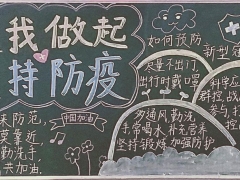 我做起
持防疫
如何预防
新型冠
尽量不出门
出行时戴口罩
科学应
群控战
参与,打
来防范,
莫靠近
勤洗手,
共加油.
中国加油
多通风 勤洗
手,常喝水 补充营养
坚持锻炼 加强防护